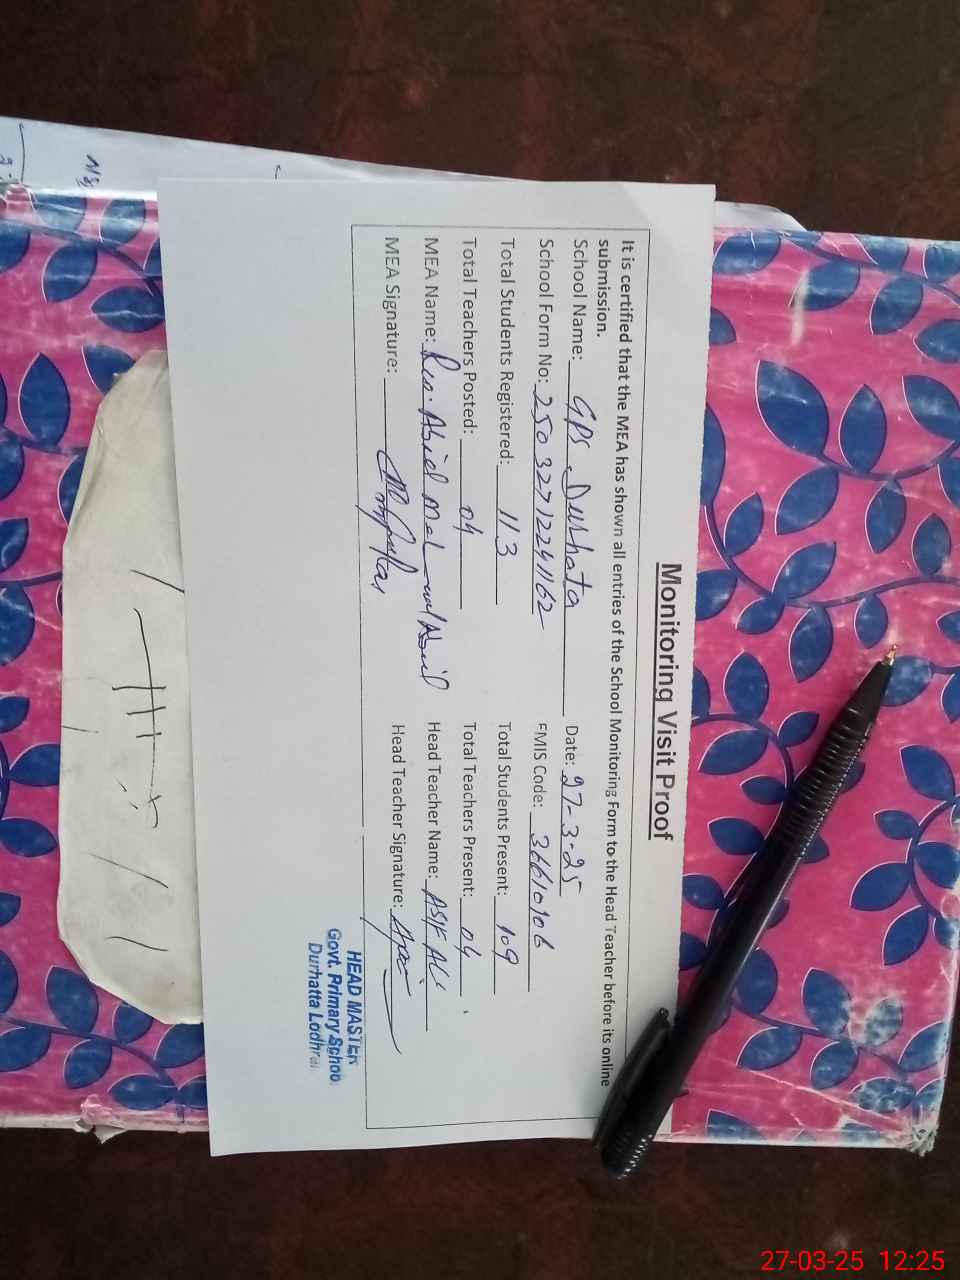 Monitoring Visit Proof
It is certified that the MEA has shown all entries of the School Monitoring Form to the Head Teacher before its online
submission.
School Name: GPS Durhata Date: 27-3-25
School Form No: 25032712241162 EMIS Code: 36610106
Total Students Registered: 113 Total Students Present: 109
Total Teachers Posted: 04 Total Teachers Present: 04
MEA Name: Head Teacher Name: ASIF ALI
MEA Signature: Head Teacher Signature:
HEAD MASTER
Govt. Primary School
Durhatta Lodhran
27-03-25 12:25